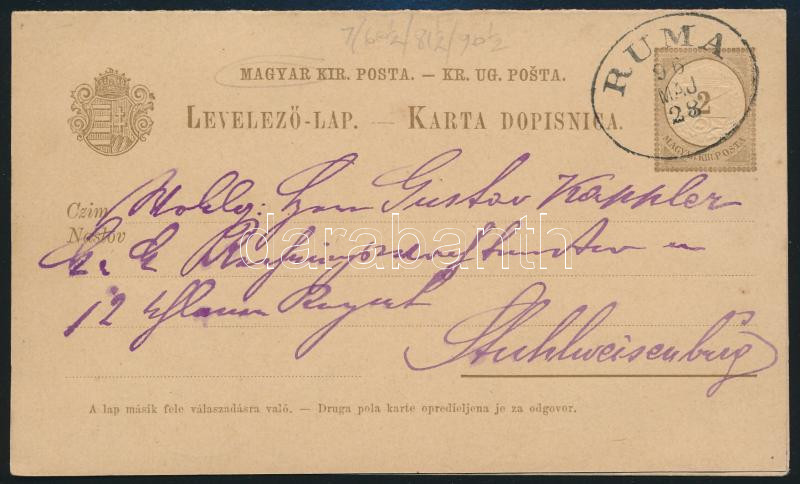 7/60½/8½/90½
MAGYAR KIR. POSTA. — KR. UG. POŠTA.
RUMA
96
MAJ
28
2
MAGY. KIR. POSTA
LEVELEZŐ-LAP. — KARTA DOPISNICA.
Czim
Naslov
Wohlg: Herrn Gustav Kappler
k. k.
12 Regiment
Stuhlweisenburg
darabanth
A lap másik fele válaszadásra való. — Druga pola karte opredieljena je za odgovor.